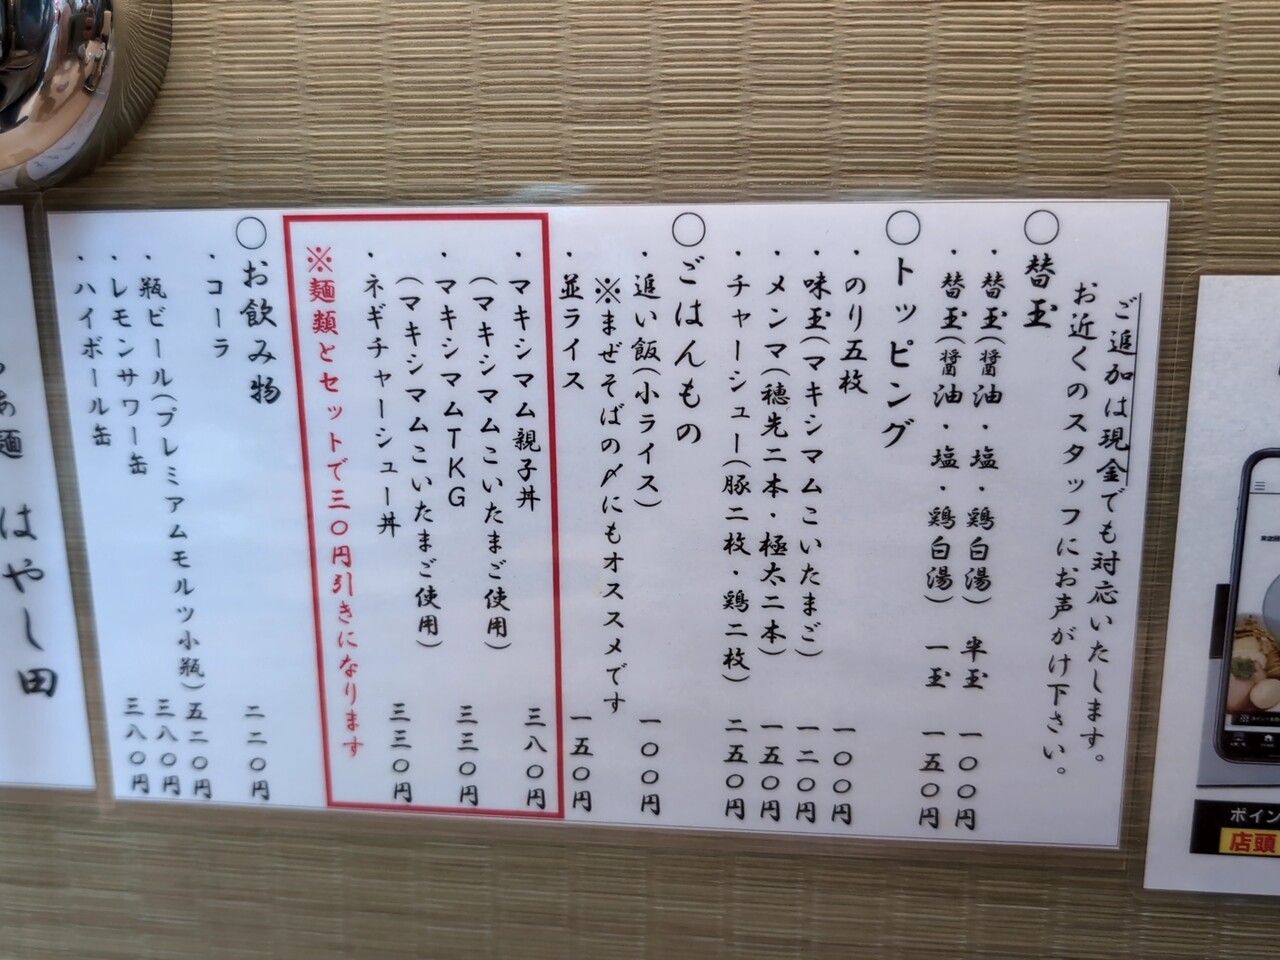 ご追加は現金でも対応いたします。
お近くのスタッフにお声がけ下さい。
○替玉
・替玉(醤油・塩・鶏白湯) 半玉 一〇〇円
・替玉(醤油・塩・鶏白湯) 一玉 一五〇円
○トッピング
・のり五枚 一〇〇円
・味玉(マキシマムこいたまご) 一二〇円
・メンマ(穂先二本・極太二本) 一五〇円
・チャーシュー(豚二枚・鶏二枚) 二五〇円
○ごはんもの
・追い飯(小ライス) 一〇〇円
※まぜそばの〆にもオススメです
・並ライス 一五〇円
・マキシマム親子丼 三八〇円
(マキシマムこいたまご使用)
・マキシマムTKG 三三〇円
(マキシマムこいたまご使用)
・ネギチャーシュー丼 三三〇円
※麺類とセットで三〇円引きになります
○お飲み物
・コーラ 二二〇円
・瓶ビール(プレミアムモルツ小瓶) 五二〇円
・レモンサワー缶 三八〇円
・ハイボール缶 三八〇円
はやし田
ポイン
店頭